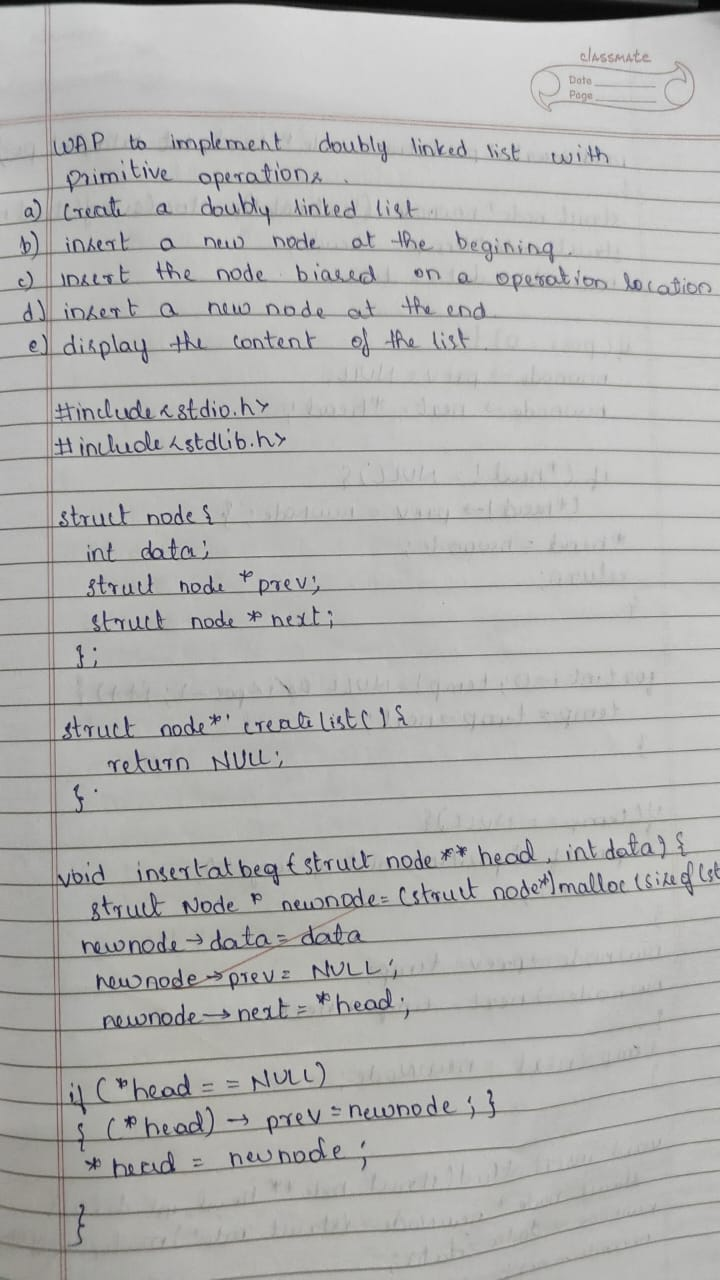 classmate
Date
Page
WAP to implement doubly linked list with
primitive operations.
a) Create a doubly linked list.
b) insert a new node at the begining.
c) insert the node biased on a operation location
d) insert a new node at the end
e) display the content of the list.
#include<stdio.h>
#include<stdlib.h>
struct node{
int data;
struct node *prev;
struct node *next;
};
struct node* createlist(){
return NULL;
}
void insertatbeg(struct node** head, int data){
struct Node * newnode=(struct node*)malloc(sizeof(st
newnode→data=data
newnode→prev= NULL;
newnode→next=*head;
if (*head == NULL)
{ (*head) → prev=newnode; }
*head = newnode;
}